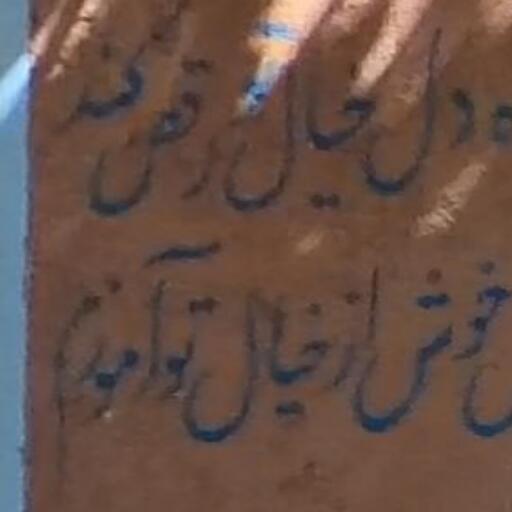 دل خیال رقص کند
خوش از خیال تو آموزم